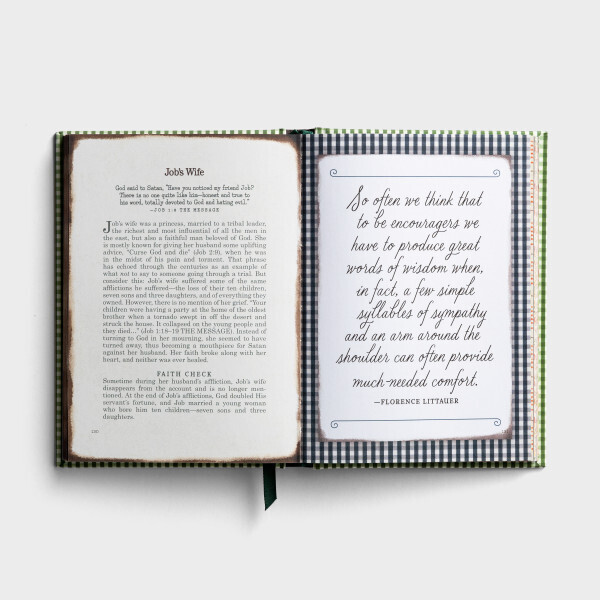 Job's Wife
God said to Satan, "Have you noticed my friend Job?
There is no one quite like him—honest and true to
his word, totally devoted to God and hating evil."
—JOB 1:8 THE MESSAGE
Job's wife was a princess, married to a tribal leader,
the richest and most influential of all the men in
the east, but also a faithful man beloved of God. She
is mostly known for giving her husband some uplifting
advice, "Curse God and die" (Job 2:9), when he was
in the midst of his pain and torment. That phrase
has echoed through the centuries as an example of
what not to say to someone going through a trial. But
consider this: Job's wife suffered some of the same
afflictions he suffered—the loss of their ten children,
seven sons and three daughters, and of everything they
owned. However, there is no mention of her grief. "Your
children were having a party at the home of the oldest
brother when a tornado swept in off the desert and
struck the house. It collapsed on the young people and
they died..." (Job 1:18–19 THE MESSAGE). Instead of
turning to God in her mourning, she seemed to have
turned away, thus becoming a mouthpiece for Satan
against her husband. Her faith broke along with her
heart, and neither was ever healed.
FAITH CHECK
Sometime during her husband's affliction, Job's wife
disappears from the account and is no longer men-
tioned. At the end of Job's afflictions, God doubled His
servant's fortune, and Job married a young woman
who bore him ten children—seven sons and three
daughters.
So often we think that
to be encouragers we
have to produce great
words of wisdom when,
in fact, a few simple
syllables of sympathy
and an arm around the
shoulder can often provide
much-needed comfort.
—FLORENCE LITTAUER